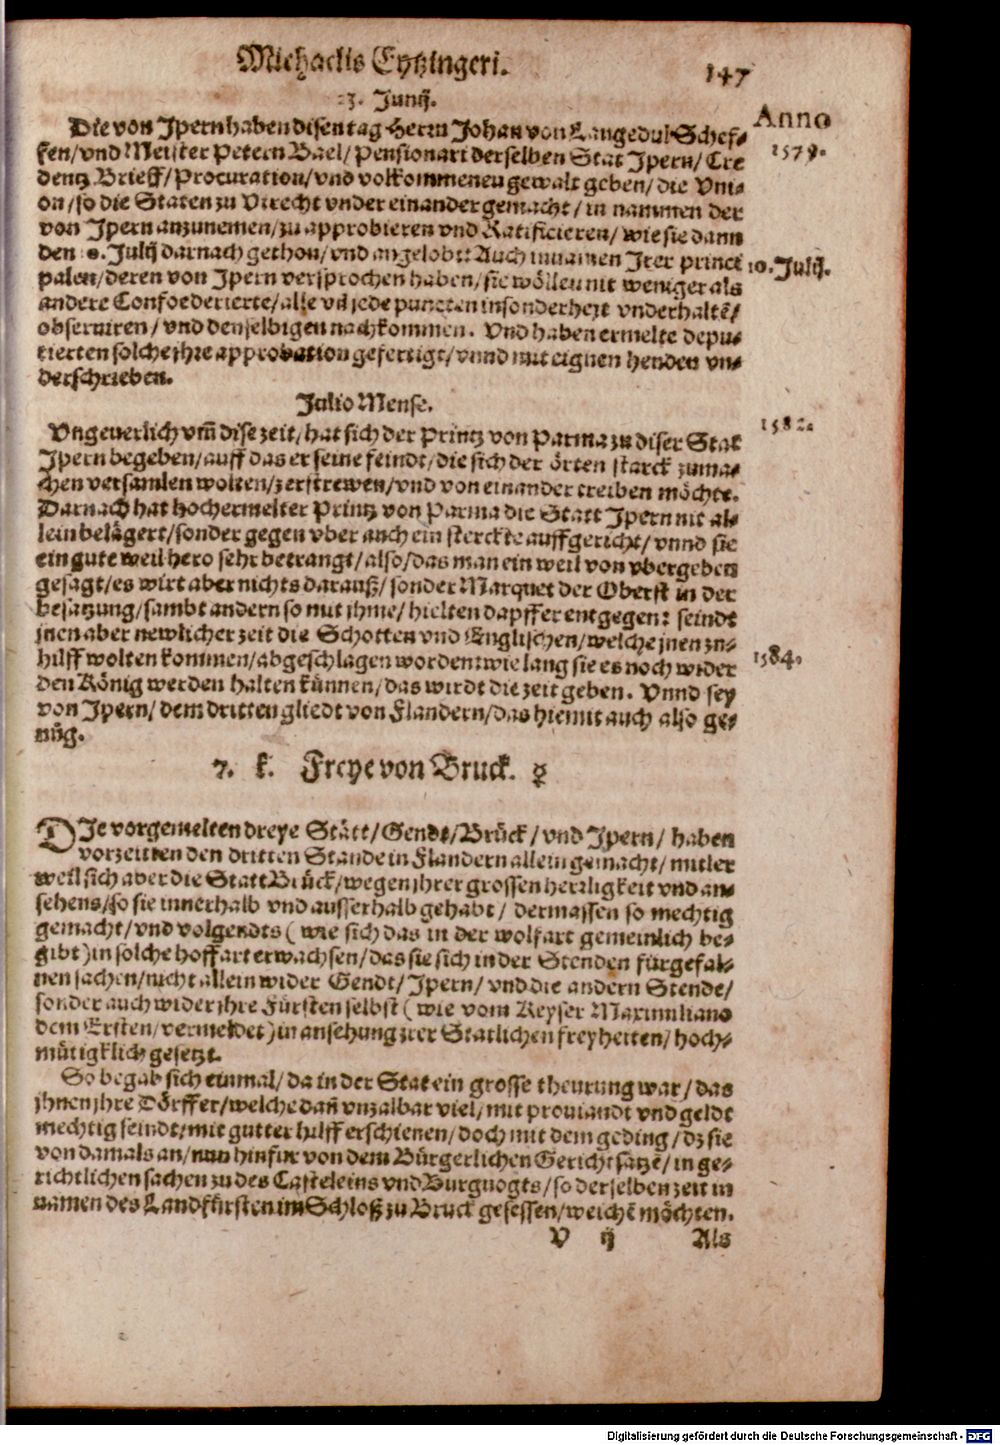 Michaelis Eytzingeri.
147
Anno
1579.
23. Junij.
Die von Jpern haben disen tag Herrn Johan von Langedul Schef-
fen/vnd Meister Petern Bael/Pensionari derselben Stat Jpern/Cre
dentz Brieff/Procuration/vnd volkommenen gewalt geben/die Vni-
on/so die Staten zu Vtrecht vnder einander gemacht/in nammen der
von Jpern anzunemen/zu approbieren vnd Ratificieren/wie sie dann
den 10. Julij darnach gethon/vnd angelobt: Auch in namen Jrer princi
10. Julij.
palen/deren von Jpern versprochen haben/sie wöllen nit weniger als
andere Confoederierte/alle vñ jede puncten insonderheyt vnderhaltē/
obseruiren/vnd denselbigen nachkommen. Vnd haben ermelte depu-
tierten solche jhre approbation gefertigt/vnnd mit eignen henden vn-
derschrieben.
Julio Mense.
1582.
Vngeuerlich vm̄ dise zeit/hat sich der Printz von Parma zu diser Stat
Jpern begeben/auff das er seine feindt/die sich der örten starck zuma-
chen versamlen wolten/zerstrewen/vnd von einander treiben möchte.
Darnach hat hochermelter Printz von Parma die Statt Jpern nit al-
lein belägert/sonder gegen vber auch ein sterckte auffgericht/vnnd sie
ein gute weil hero sehr betrangt/also/das man ein weil von vbergeben
gesagt/es wirt aber nichts darauß/sonder Marquet der Oberst in der
besatzung/sambt andern so mit jhme/hielten dapffer entgegen: seindt
jnen aber newlicher zeit die Schotten vnd Englischen/welche jnen zu-
hilff wolten kommen/abgeschlagen worden: wie lang sie es noch wider
1584.
den König werden halten künnen/das wirdt die zeit geben. Vnnd sey
von Jpern/dem dritten gliedt von Flandern/das hiemit auch also ge-
nůg.
7. k. Freye von Bruck. ☿
DJe vorgemelten dreye Stätt/Gendt/Brück/vnd Jpern/haben
vorzeitten den dritten Stande in Flandern allein gemacht/mitler
weil sich aber die Statt Brück/wegen jhrer grossen herrligkeit vnd an-
sehens/so sie innerhalb vnd ausserhalb gehabt/dermassen so mechtig
gemacht/vnd volgendts (wie sich das in der wolfart gemeinlich be-
gibt) in solche hoffart erwachsen/das sie sich in der Stenden fürgefal-
nen sachen/nicht allein wider Gendt/Jpern/vnd die andern Stende/
sonder auch wider jhre Fürsten selbst (wie vom Keyser Maximiliano
dem Ersten/vermeldet) in ansehung jrer Statlichen freyheiten/hoch-
mütigklich gesetzt.
So begab sich einmal/da in der Stat ein grosse theurung war/das
jhnen jhre Dörffer/welche dañ vnzalbar viel/mit prouiandt vnd geldt
mechtig seindt/mit gutter hilff erschienen/doch mit dem geding/dz sie
von damals an/nun hinfür von dem Bürgerlichen Gerichtsatzē/in ge-
richtlichen sachen zu des Casteleins vnd Burguogts/so derselben zeit in
namen des Landfürsten im Schloß zu Bruck gesessen/weichē möchten.
V ij Als
Digitalisierung gefördert durch die Deutsche Forschungsgemeinschaft - DFG